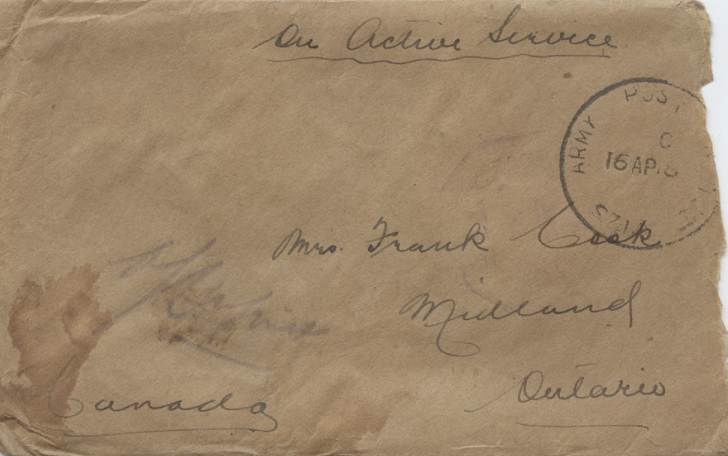 On Active Service
ARMY POST
C
16 AP.
Mrs. Frank Cook
Midland
Ontario
Canada